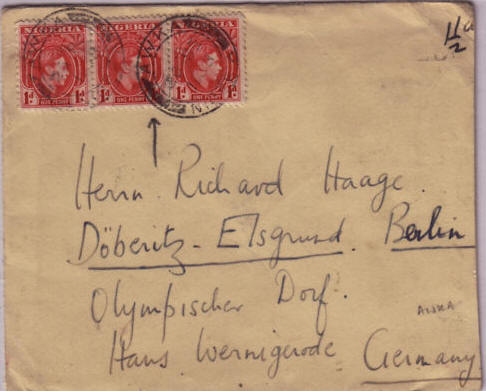 NIGERIA NIGERIA NIGERIA
1d ONE PENNY 1d 1d ONE PENNY 1d 1d ONE PENNY 1d
AWKA
Herrn Richard Haage.
Döberitz - Elsgrund. Berlin
Olympischer Dorf.
AWKA
Haus Wernigerode Germany